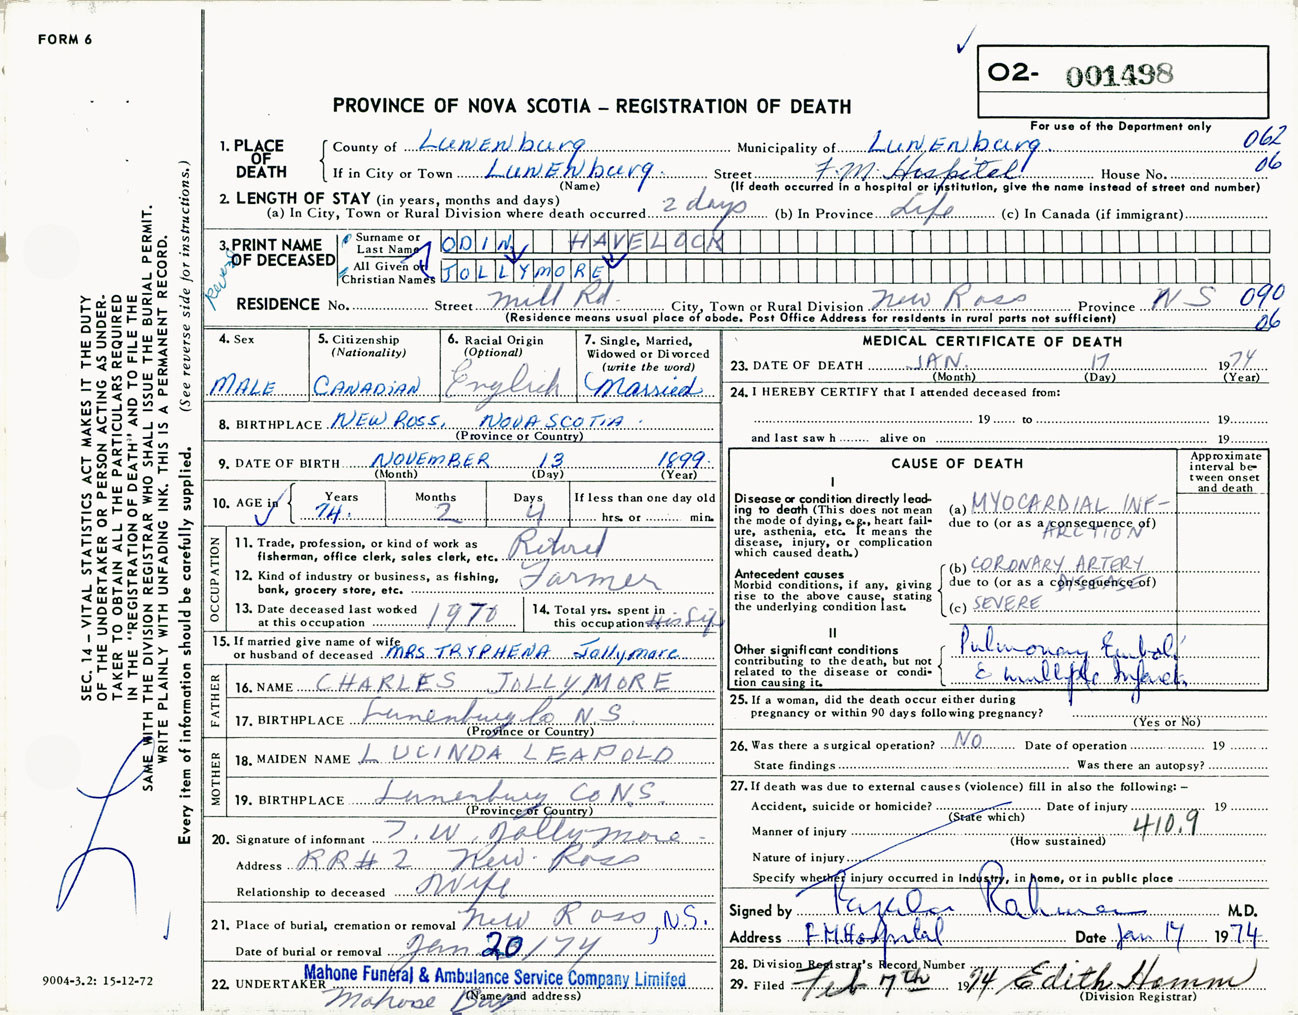 FORM 6
O2- 001498
PROVINCE OF NOVA SCOTIA – REGISTRATION OF DEATH
For use of the Department only
1. PLACE OF DEATH
County of Lunenburg Municipality of Lunenburg 062
If in City or Town Lunenburg. Street F.M. Hospital House No. 06
(Name) (If death occurred in a hospital or institution, give the name instead of street and number)
2. LENGTH OF STAY (in years, months and days)
(a) In City, Town or Rural Division where death occurred 2 days (b) In Province Life (c) In Canada (if immigrant)
3. PRINT NAME OF DECEASED
Surname or Last Name ODIN HAVELOCK
All Given or Christian Names JOLLYMORE
reverse
RESIDENCE No. Street Mill Rd. City, Town or Rural Division New Ross Province NS 090
(Residence means usual place of abode. Post Office Address for residents in rural parts not sufficient) 06
4. Sex
MALE
5. Citizenship (Nationality)
CANADIAN
6. Racial Origin (Optional)
English
7. Single, Married, Widowed or Divorced (write the word)
Married
8. BIRTHPLACE NEW ROSS, NOVA SCOTIA
(Province or Country)
9. DATE OF BIRTH NOVEMBER 13 1899
(Month) (Day) (Year)
10. AGE in Years Months Days If less than one day old
74. 2 4 hrs. or min.
OCCUPATION
11. Trade, profession, or kind of work as fisherman, office clerk, sales clerk, etc. Retired
12. Kind of industry or business, as fishing, bank, grocery store, etc. Farmer
13. Date deceased last worked at this occupation 1970
14. Total yrs. spent in this occupation His Life
15. If married give name of wife or husband of deceased MRS TRYPHENA Jollymore
FATHER
16. NAME CHARLES JOLLYMORE
17. BIRTHPLACE Lunenburg Co N.S
(Province or Country)
MOTHER
18. MAIDEN NAME LUCINDA LEAPOLD
19. BIRTHPLACE Lunenburg Co N.S.
(Province or Country)
20. Signature of informant T. W. Jollymore
Address RR# 2 New Ross
Relationship to deceased Wife
21. Place of burial, cremation or removal New Ross, N.S.
Date of burial or removal Jan 20/74
22. UNDERTAKER Mahone Funeral & Ambulance Service Company Limited
Mahone Bay
(Name and address)
MEDICAL CERTIFICATE OF DEATH
23. DATE OF DEATH JAN. 17 1974
(Month) (Day) (Year)
24. I HEREBY CERTIFY that I attended deceased from:
19 to 19
and last saw h alive on 19
CAUSE OF DEATH
Approximate interval between onset and death
I
Disease or condition directly leading to death (This does not mean the mode of dying, e.g., heart failure, asthenia, etc. It means the disease, injury, or complication which caused death.)
(a) MYOCARDIAL INF-
due to (or as a consequence of)
ARCTION
Antecedent causes
Morbid conditions, if any, giving rise to the above cause, stating the underlying condition last.
(b) CORONARY ARTERY
due to (or as a consequence of)
DISEASE
(c) SEVERE
II
Other significant conditions
contributing to the death, but not related to the disease or condition causing it.
Pulmonary Emboli
c multiple Infarcts
25. If a woman, did the death occur either during pregnancy or within 90 days following pregnancy?
(Yes or No)
26. Was there a surgical operation? NO Date of operation 19
State findings Was there an autopsy?
27. If death was due to external causes (violence) fill in also the following: –
Accident, suicide or homicide? Date of injury 19
(State which)
Manner of injury 410.9
(How sustained)
Nature of injury
Specify whether injury occurred in Industry, in home, or in public place
Signed by Rahman M.D.
Address F.M. Hospital Date Jan 17 1974
28. Division Registrar's Record Number
29. Filed Feb 7th 1974 Edith Hamm
(Division Registrar)
SEC. 14 – VITAL STATISTICS ACT MAKES IT THE DUTY
OF THE UNDERTAKER OR PERSON ACTING AS UNDER-
TAKER TO OBTAIN ALL THE PARTICULARS REQUIRED
IN THE "REGISTRATION OF DEATH" AND TO FILE THE
SAME WITH THE DIVISION REGISTRAR WHO SHALL ISSUE THE BURIAL PERMIT.
WRITE PLAINLY WITH UNFADING INK. THIS IS A PERMANENT RECORD.
Every item of information should be carefully supplied. (See reverse side for instructions.)
9004-3.2: 15-12-72